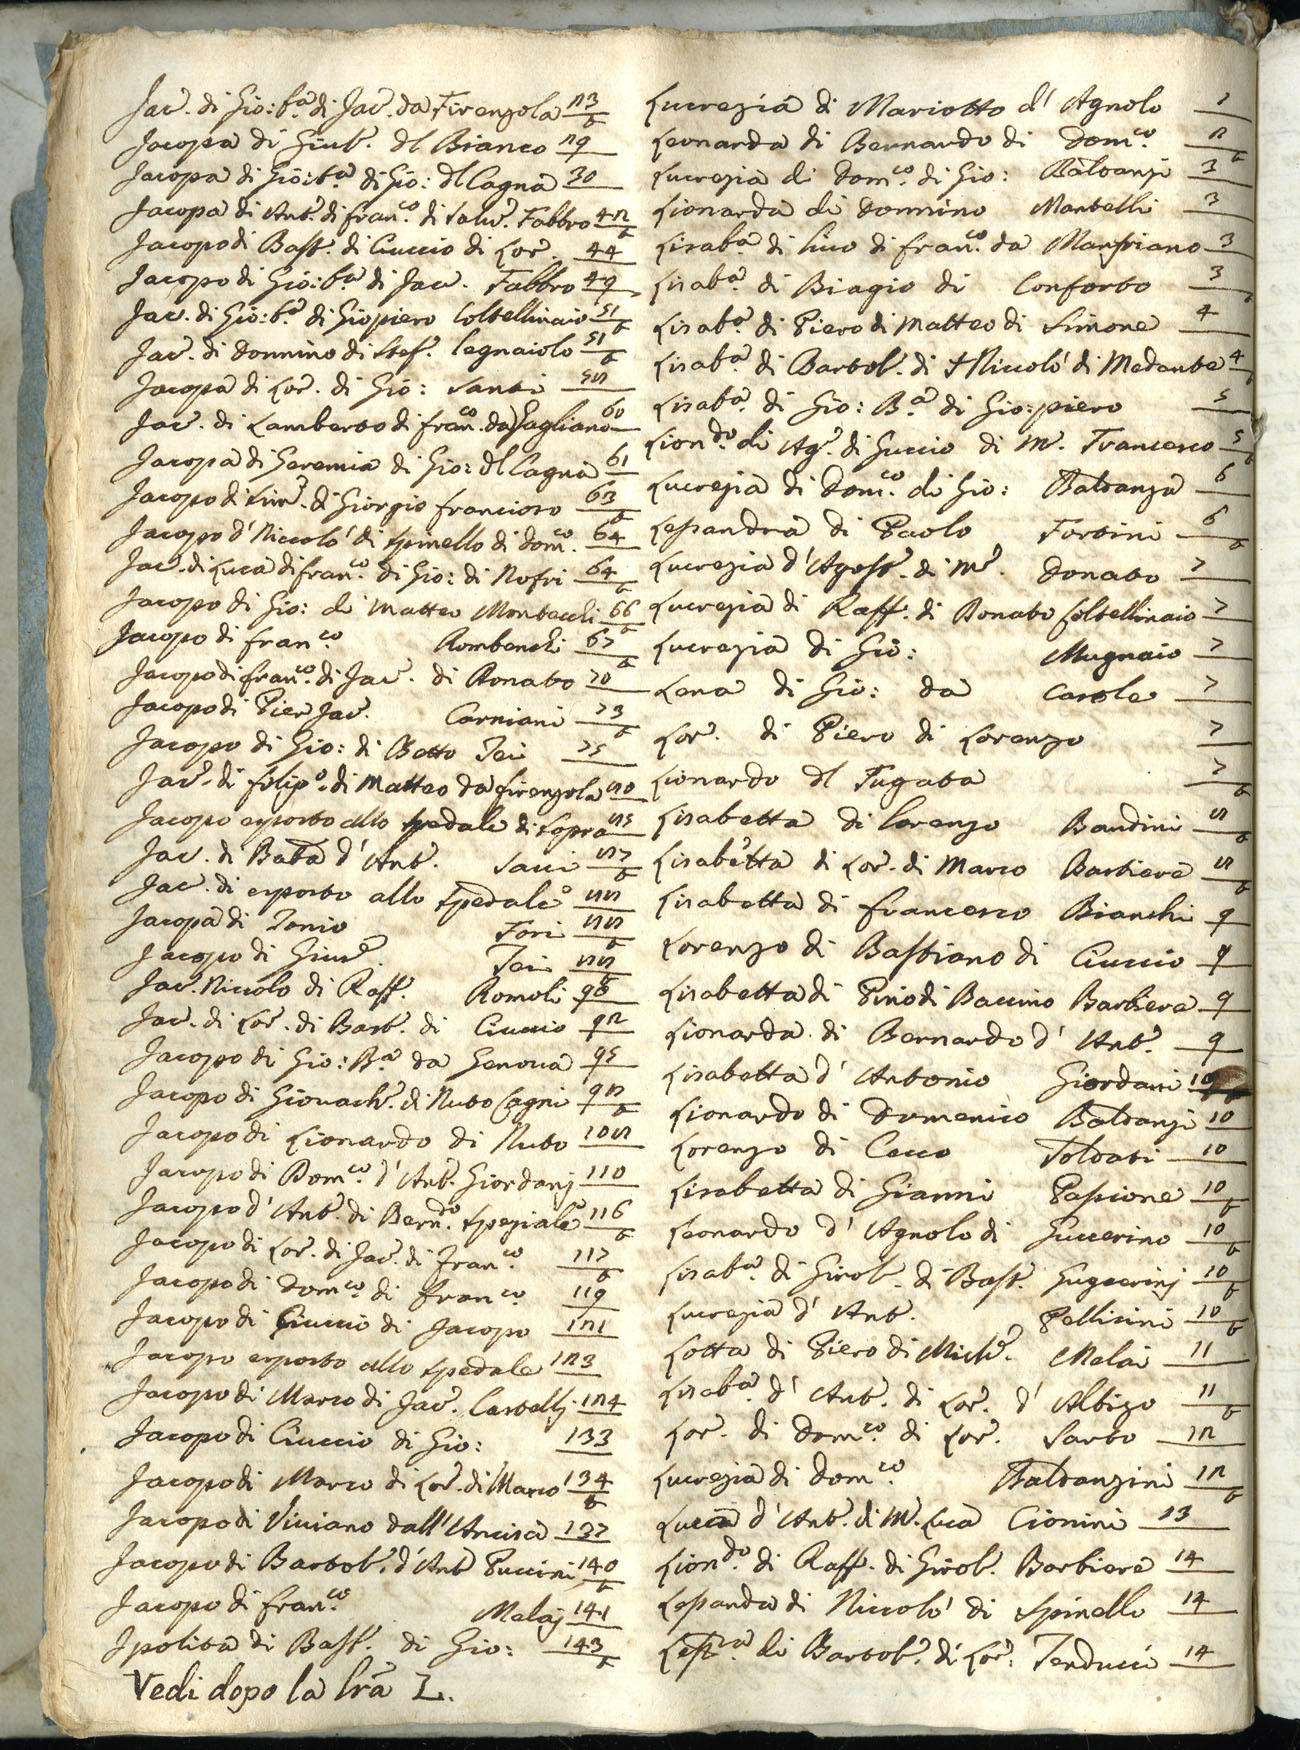 Jac.º di Gio: b.ª di Jac.º da Firenzola 23 b
Jacopa di Giul.º dl Bianco 29
Jacopa di Gio: b.ª di Gio: dl Cagna 30
Jacopa di Ant.º di fran.co di Salv.e Fabbro 42 b
Jacopo di Bast.º di Ciuccio di Lor.º 44
Jacopo di Gio: b.ª di Jac.º Fabbro 49
Jac.º di Gio: b.ª di Giopiero Coltellinaio 51 b
Jac.º di Donnino di Stef.º legnaiolo 51 b
Jacopa di Lor.º di Gio: Santi 58
Jac.º di Lamberto di fran.co da Gagliano 60
Jacopa di Geremia di Gio: dl Cagna 61
Jacopo di Sim.e di Giorgio francioso 63 b
Jacopo d' Niccolò di Spinello di Dom.co 64 b
Jac.º di Luca di fran.co di Gio: di Nofri 64 b
Jacopo di Gio: di Matteo Montecoli 66 b
Jacopo di fran.co Rombenchi 67 b
Jacopo di fran.co di Jac.º di Donato 70
Jacopo di Pier Jac.º Corniani 73 b
Jacopo di Gio: di Betto Tei 75
Jac.º di filip.º di Matteo da firenzola 80
Jacopo esposto allo spedale di sopra 85
Jac.º di Bat.a d' Ant.º Sacci 87 b
Jac.º di esposto allo spedale 88
Jacopa di Tonio Fori 88 b
Jacopo di Gius.e Tei 88 b
Jac.º Niccolo di Raff.º Romoli 90
Jac.º di Lor.º di Bart.º di Ciuccio 92
Jacopo di Gio: B.ª da Genova 95
Jacopo di Giovach.º di Nuto Cagni 98 b
Jacopo di Lionardo di Nuto 108
Jacopo di Dom.co d' Ant.º Giordanj 110
Jacopo d' Ant.º di Bern.do Speziale 116 b
Jacopo di Lor.º di Jac.º di Fran.co 117 b
Jacopo di Dom.co di Fran.co 119
Jacopo di Ciuccio di Jacopo 121
Jacopo esposto allo spedale 123
Jacopo di Marco di Jac.º Castellj 124
Jacopo di Ciuccio di Gio: 133
Jacopo di Marco di Lor.º di Marco 134 b
Jacopo di Viviano dall' Ancisa 137
Jacopo di Bartol.º d' Ant.º Puccini 140 b
Jacopo di fran.co Melaj 141
Ipolita di Bast.º di Gio: 143 b
Vedi dopo la lr̃a L.
Lucrezia di Mariotto d' Agnolo 1
Leonarda di Bernardo di Dom.co 2 b
Lucrezia di Dom.co di Gio: Baldanzi 3
Lionarda di Donnino Martelli 3
Lisab.a di Lico di fran.co da Mansriano 3
Lisab.a di Biagio di Conforto 3 b
Lisab.a di Piero di Matteo di Simone 4
Lisab.a di Bartol.º di Niccolò di Medante 4 b
Lisab.a di Gio: B.ª di Gio: piero 5
Lion.do di Ag.º di Guccio di M.º Francesco 5 b
Lucrezia di Dom.co di Gio: Baldanza 6
Lessandra di Paolo Fortini 6 b
Lucrezia d' Agost.º di M.º Donato 7
Lucrezia di Raff.º di Donato Coltellinaio 7
Lucrezia di Gio: Mugnaio 7
Lena di Gio: da Casole 7
Lor.º di Piero di Lorenzo 7
Lionardo dl Fugata 7 b
Lisabetta di Lorenzo Bandini 8 b
Lisabetta di Lor.º di Marco Barbiere 8 b
Lisabetta di Francesco Bianchi 9
Lorenzo di Bastiano di Ciuccio 9
Lisabetta di Pino di Baccino Barbiere 9
Lionarda di Bernardo d' Ant.º 9
Lisabetta d' Antonio Giordani 10
Lionardo di Domenico Baldanzi 10
Lorenzo di Cecco Soldati 10
Lisabetta di Gianni Passione 10 b
Leonardo d' Agnolo di Guccerino 10 b
Lisab.a di Girol.º di Bast.º Guccerinj 10 b
Lucrezia d' Ant.º Pellicini 10 b
Lotta di Piero di Mich.e Melai 11
Lisab.a d' Ant.º di Lor.º d' Albizo 11 b
Lor.º di Dom.co di Lor.º Sarto 12
Lucrezia di Dom.co Baldanzini 12 b
Lucca d' Ant.º di M.º Luca Cionini 13
Lion.do di Raff.º di Girol.º Barbiere 14
Lessanda di Niccolò di Spinello 14
Less.ra di Bartol.º di Lor.º Tenducci 14